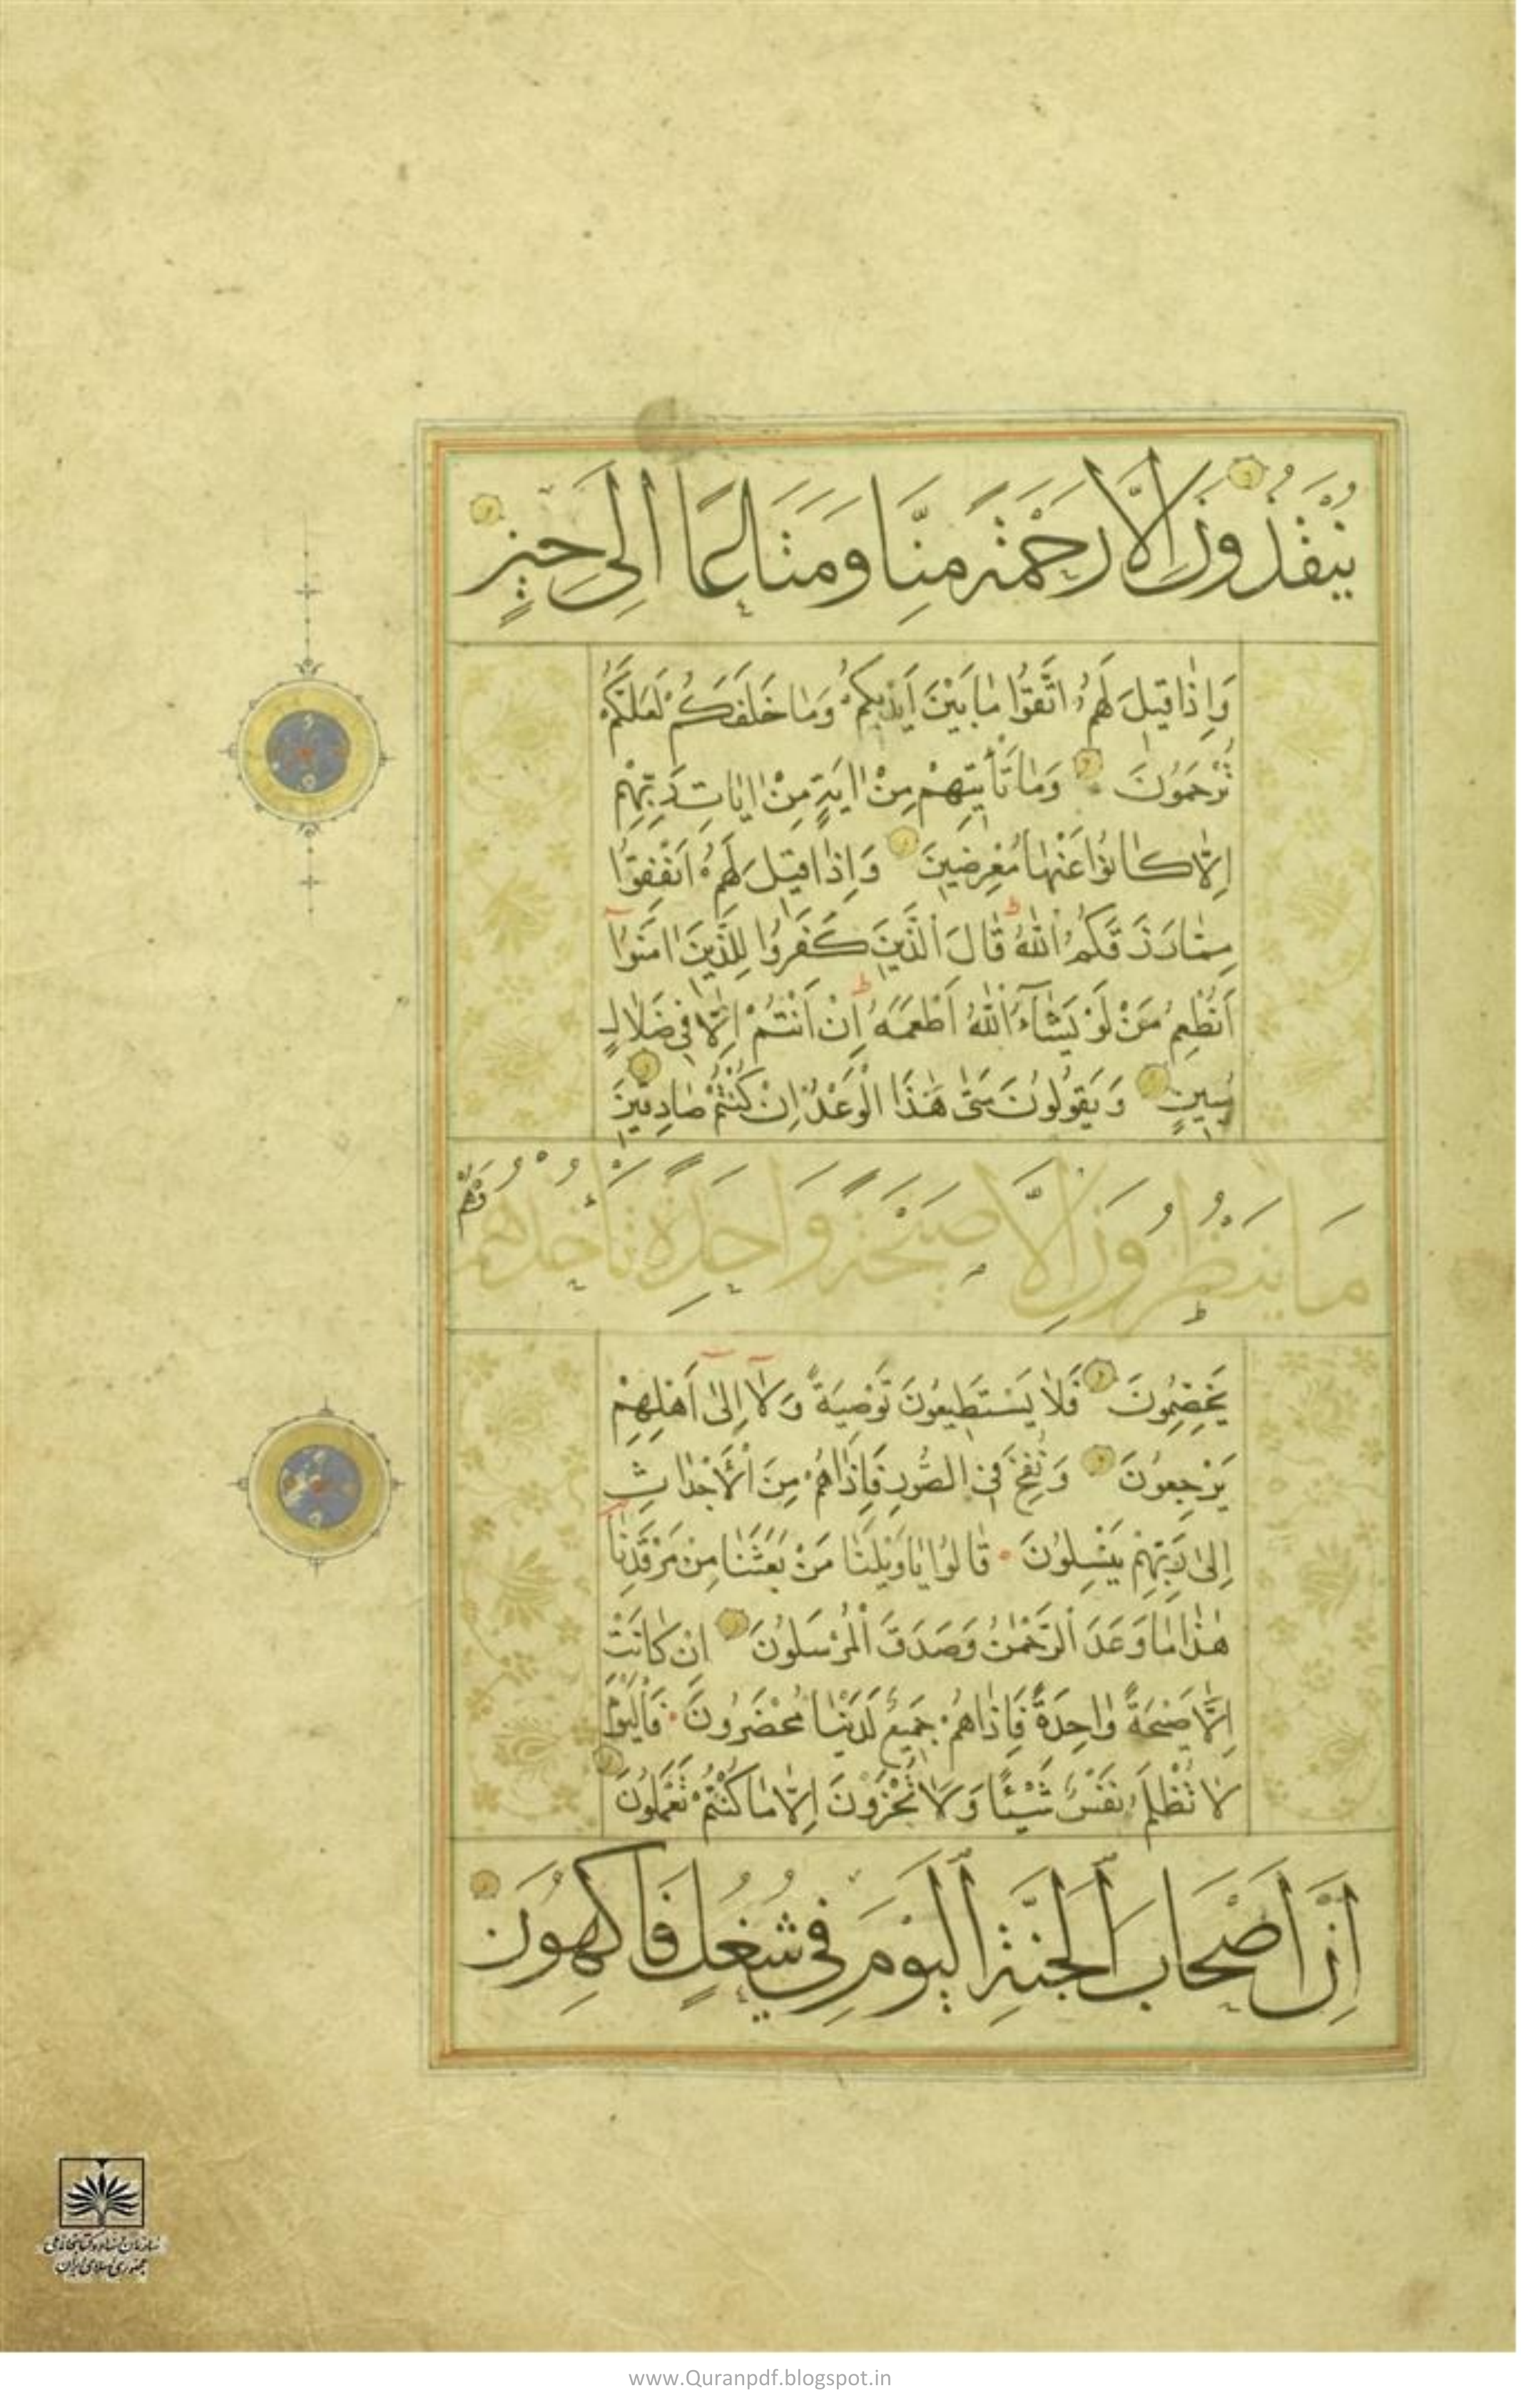 يُنْقَذُونَ اِلَّا رَحْمَةً مِنَّا وَمَتَاعًا اِلٰى حِينٍ
وَاِذَا قِيلَ لَهُمُ اتَّقُوا مَا بَيْنَ اَيْدِيكُمْ وَمَا خَلْفَكُمْ لَعَلَّكُمْ
تُرْحَمُونَ وَمَا تَأْتِيهِمْ مِنْ اٰيَةٍ مِنْ اٰيَاتِ رَبِّهِمْ
اِلَّا كَانُوا عَنْهَا مُعْرِضِينَ وَاِذَا قِيلَ لَهُمْ اَنْفِقُوا
مِمَّا رَزَقَكُمُ اللّٰهُ قَالَ الَّذِينَ كَفَرُوا لِلَّذِينَ اٰمَنُوا
اَنُطْعِمُ مَنْ لَوْ يَشَآءُ اللّٰهُ اَطْعَمَهُ اِنْ اَنْتُمْ اِلَّا فِي ضَلَالٍ
مُبِينٍ وَيَقُولُونَ مَتٰى هٰذَا الْوَعْدُ اِنْ كُنْتُمْ صَادِقِينَ
مَا يَنْظُرُونَ اِلَّا صَيْحَةً وَاحِدَةً تَأْخُذُهُمْ وَهُمْ
يَخِصِّمُونَ فَلَا يَسْتَطِيعُونَ تَوْصِيَةً وَلَا اِلٰى اَهْلِهِمْ
يَرْجِعُونَ وَنُفِخَ فِي الصُّورِ فَاِذَا هُمْ مِنَ الْاَجْدَاثِ
اِلٰى رَبِّهِمْ يَنْسِلُونَ قَالُوا يَا وَيْلَنَا مَنْ بَعَثَنَا مِنْ مَرْقَدِنَا
هٰذَا مَا وَعَدَ الرَّحْمٰنُ وَصَدَقَ الْمُرْسَلُونَ اِنْ كَانَتْ
اِلَّا صَيْحَةً وَاحِدَةً فَاِذَا هُمْ جَمِيعٌ لَدَيْنَا مُحْضَرُونَ فَالْيَوْمَ
لَا تُظْلَمُ نَفْسٌ شَيْئًا وَلَا تُجْزَوْنَ اِلَّا مَا كُنْتُمْ تَعْمَلُونَ
اِنَّ اَصْحَابَ الْجَنَّةِ الْيَوْمَ فِي شُغُلٍ فَاكِهُونَ
سازمان اسناد و کتابخانه ملی
جمهوری اسلامی ایران
www.Quranpdf.blogspot.in